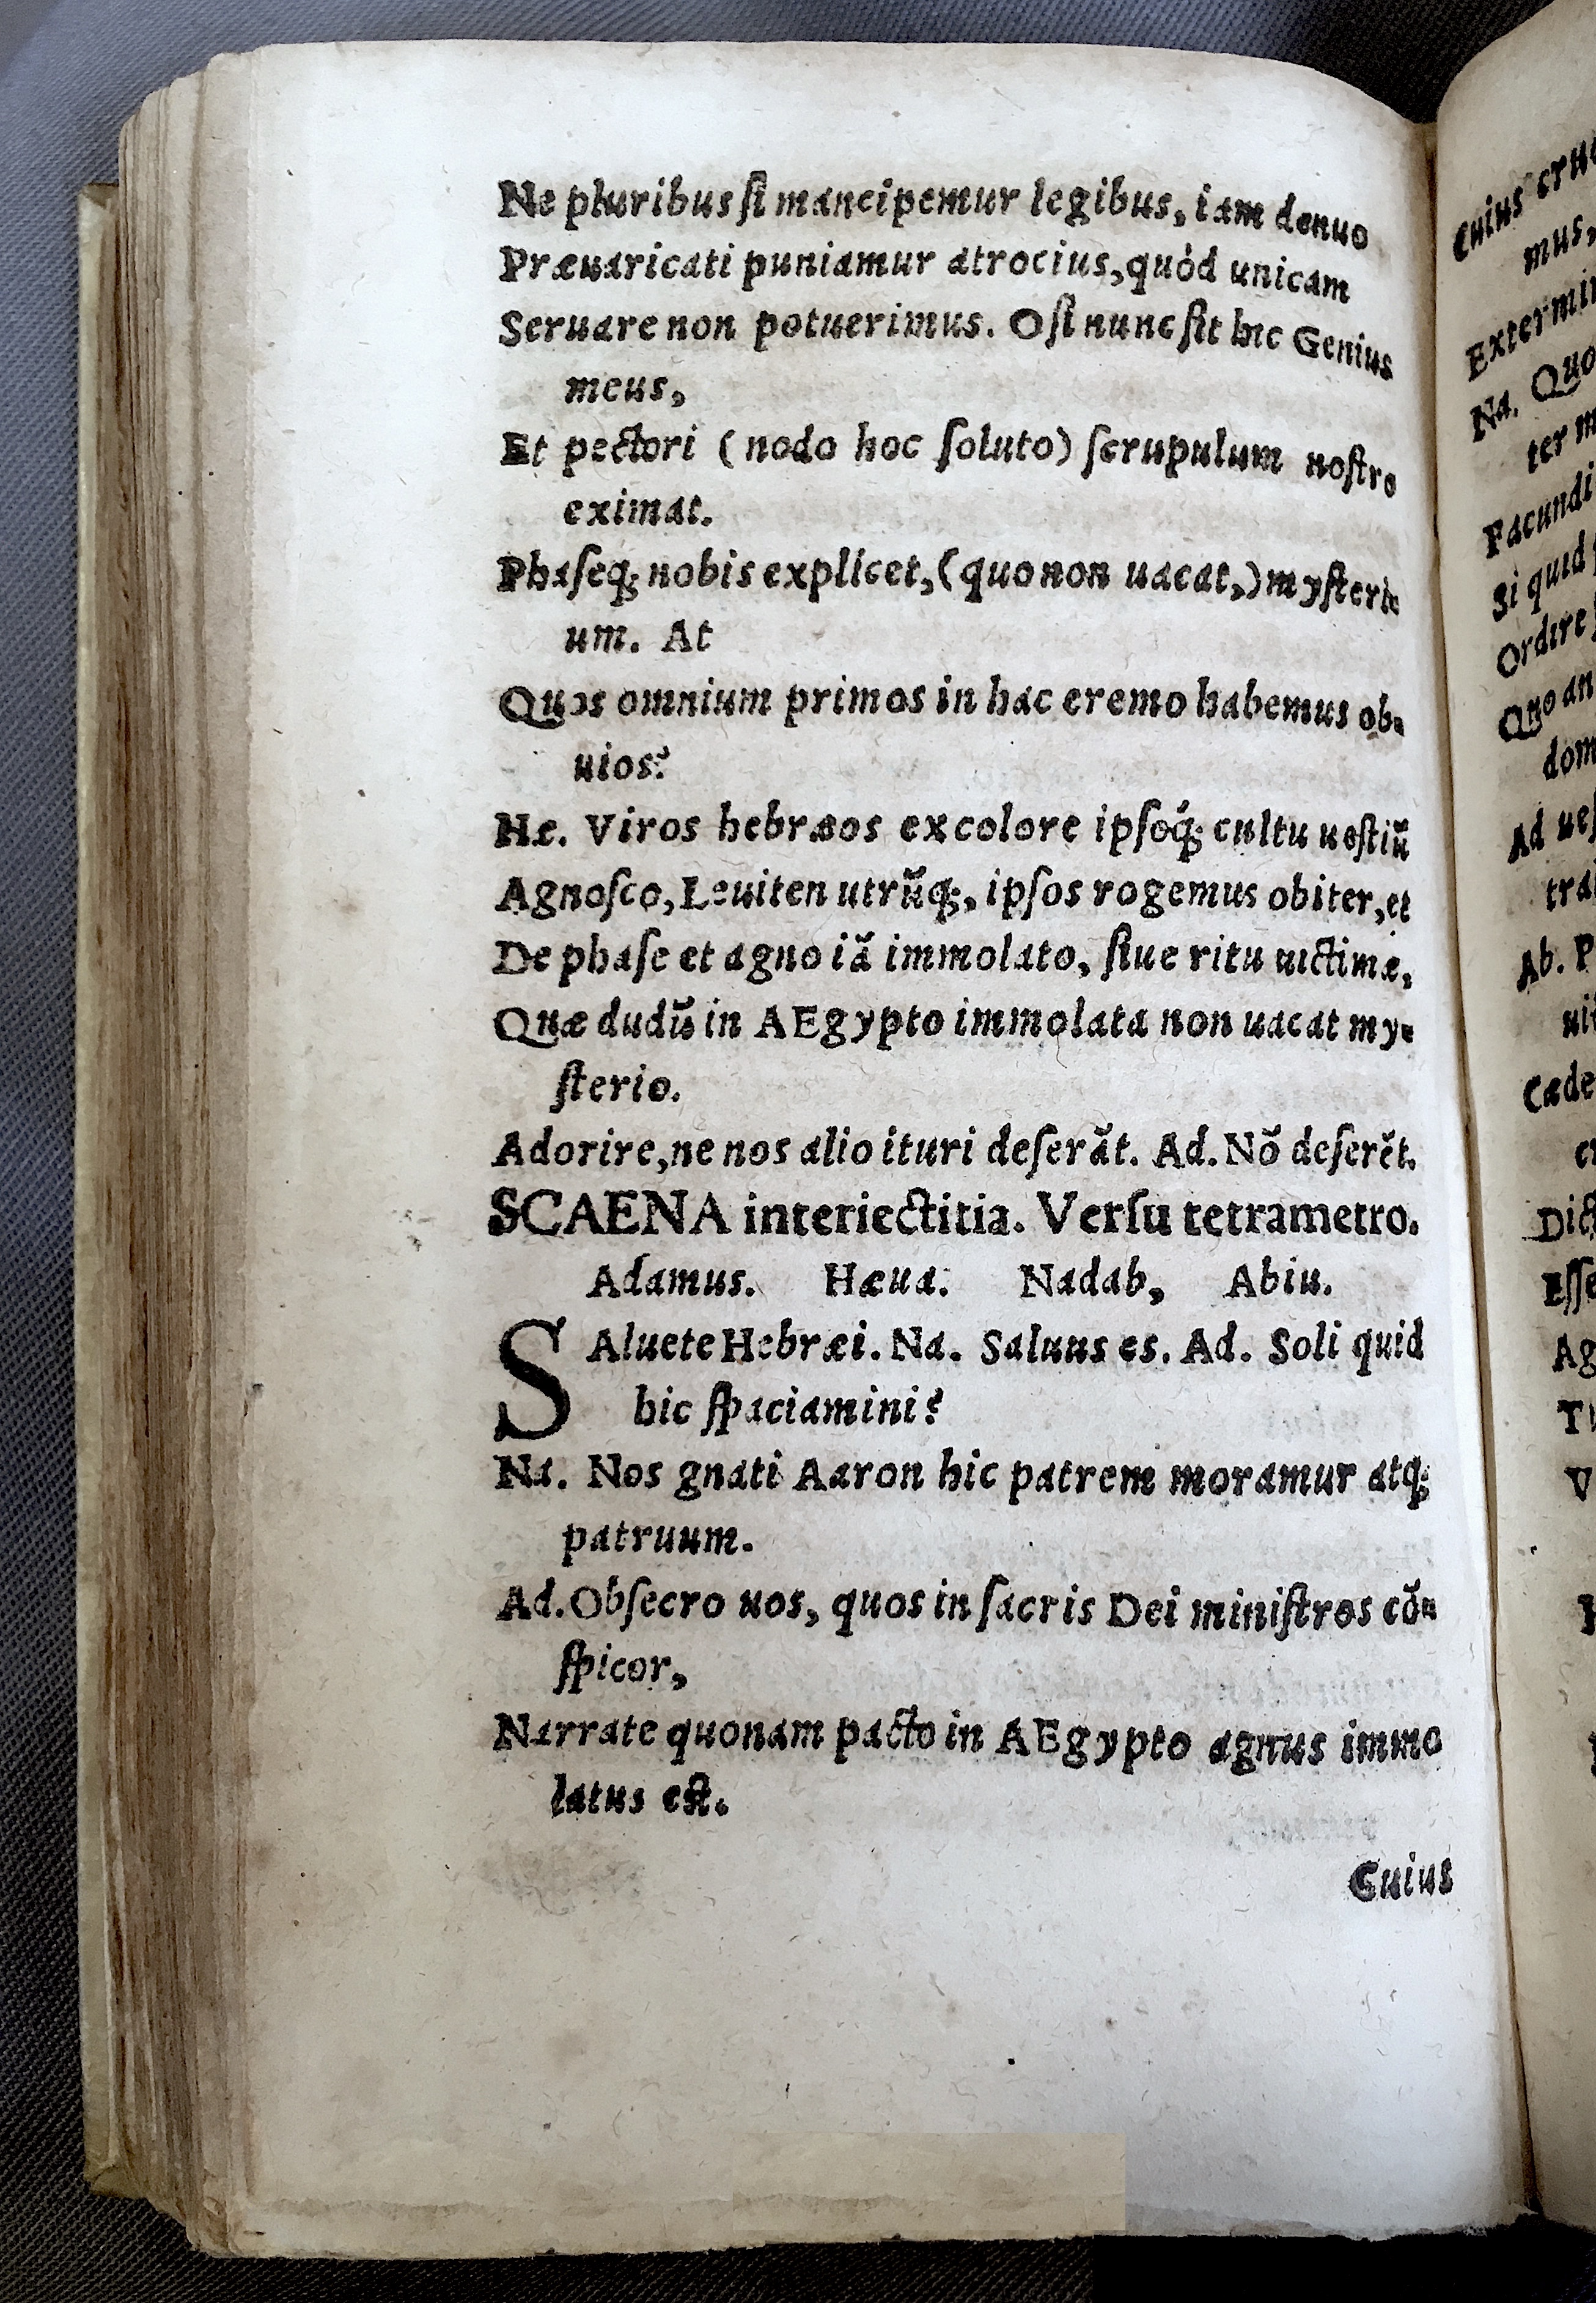 Ne pluribus ſi mancipemur legibus, iam denuo
Præuaricati puniamur atrocius, quòd unicam
Seruare non potuerimus. O ſi nunc ſit hic Genius
meus,
Et pectori (nodo hoc ſoluto) ſcrupulum noſtro
eximat.
Phaſeq; nobis explicet, (quo non uacat,) myſteri-
um. At
Quos omnium primos in hac eremo habemus ob-
uios?
He. Viros hebræos ex colore ipſoq́; cultu ueſtiũ
Agnoſco, Leuiten utrũq;, ipſos rogemus obiter, et
De phaſe et agno iã immolato, ſiue ritu uictimæ,
Quæ dudũ in AEgypto immolata non uacat my-
ſterio.
Adorire, ne nos alio ituri deſerãt. Ad. Nõ deſerẽt.
SCAENA interiectitia. Verſu tetrametro.
Adamus. Hæua. Nadab, Abiu.
SAluete Hebræi. Na. Saluus es. Ad. Soli quid
hic ſpaciamini?
Na. Nos gnati Aaron hic patrem moramur atq;
patruum.
Ad. Obſecro uos, quos in ſacris Dei miniſtros cõ-
ſpicor,
Narrate quonam pacto in AEgypto agnus immo
latus eſt.
Cuius
Cuius
mus,
Na.
Facundi
Si quid
Ordire
Quo an
dom
Ad ueſ
Ab. P
Cade
Ag